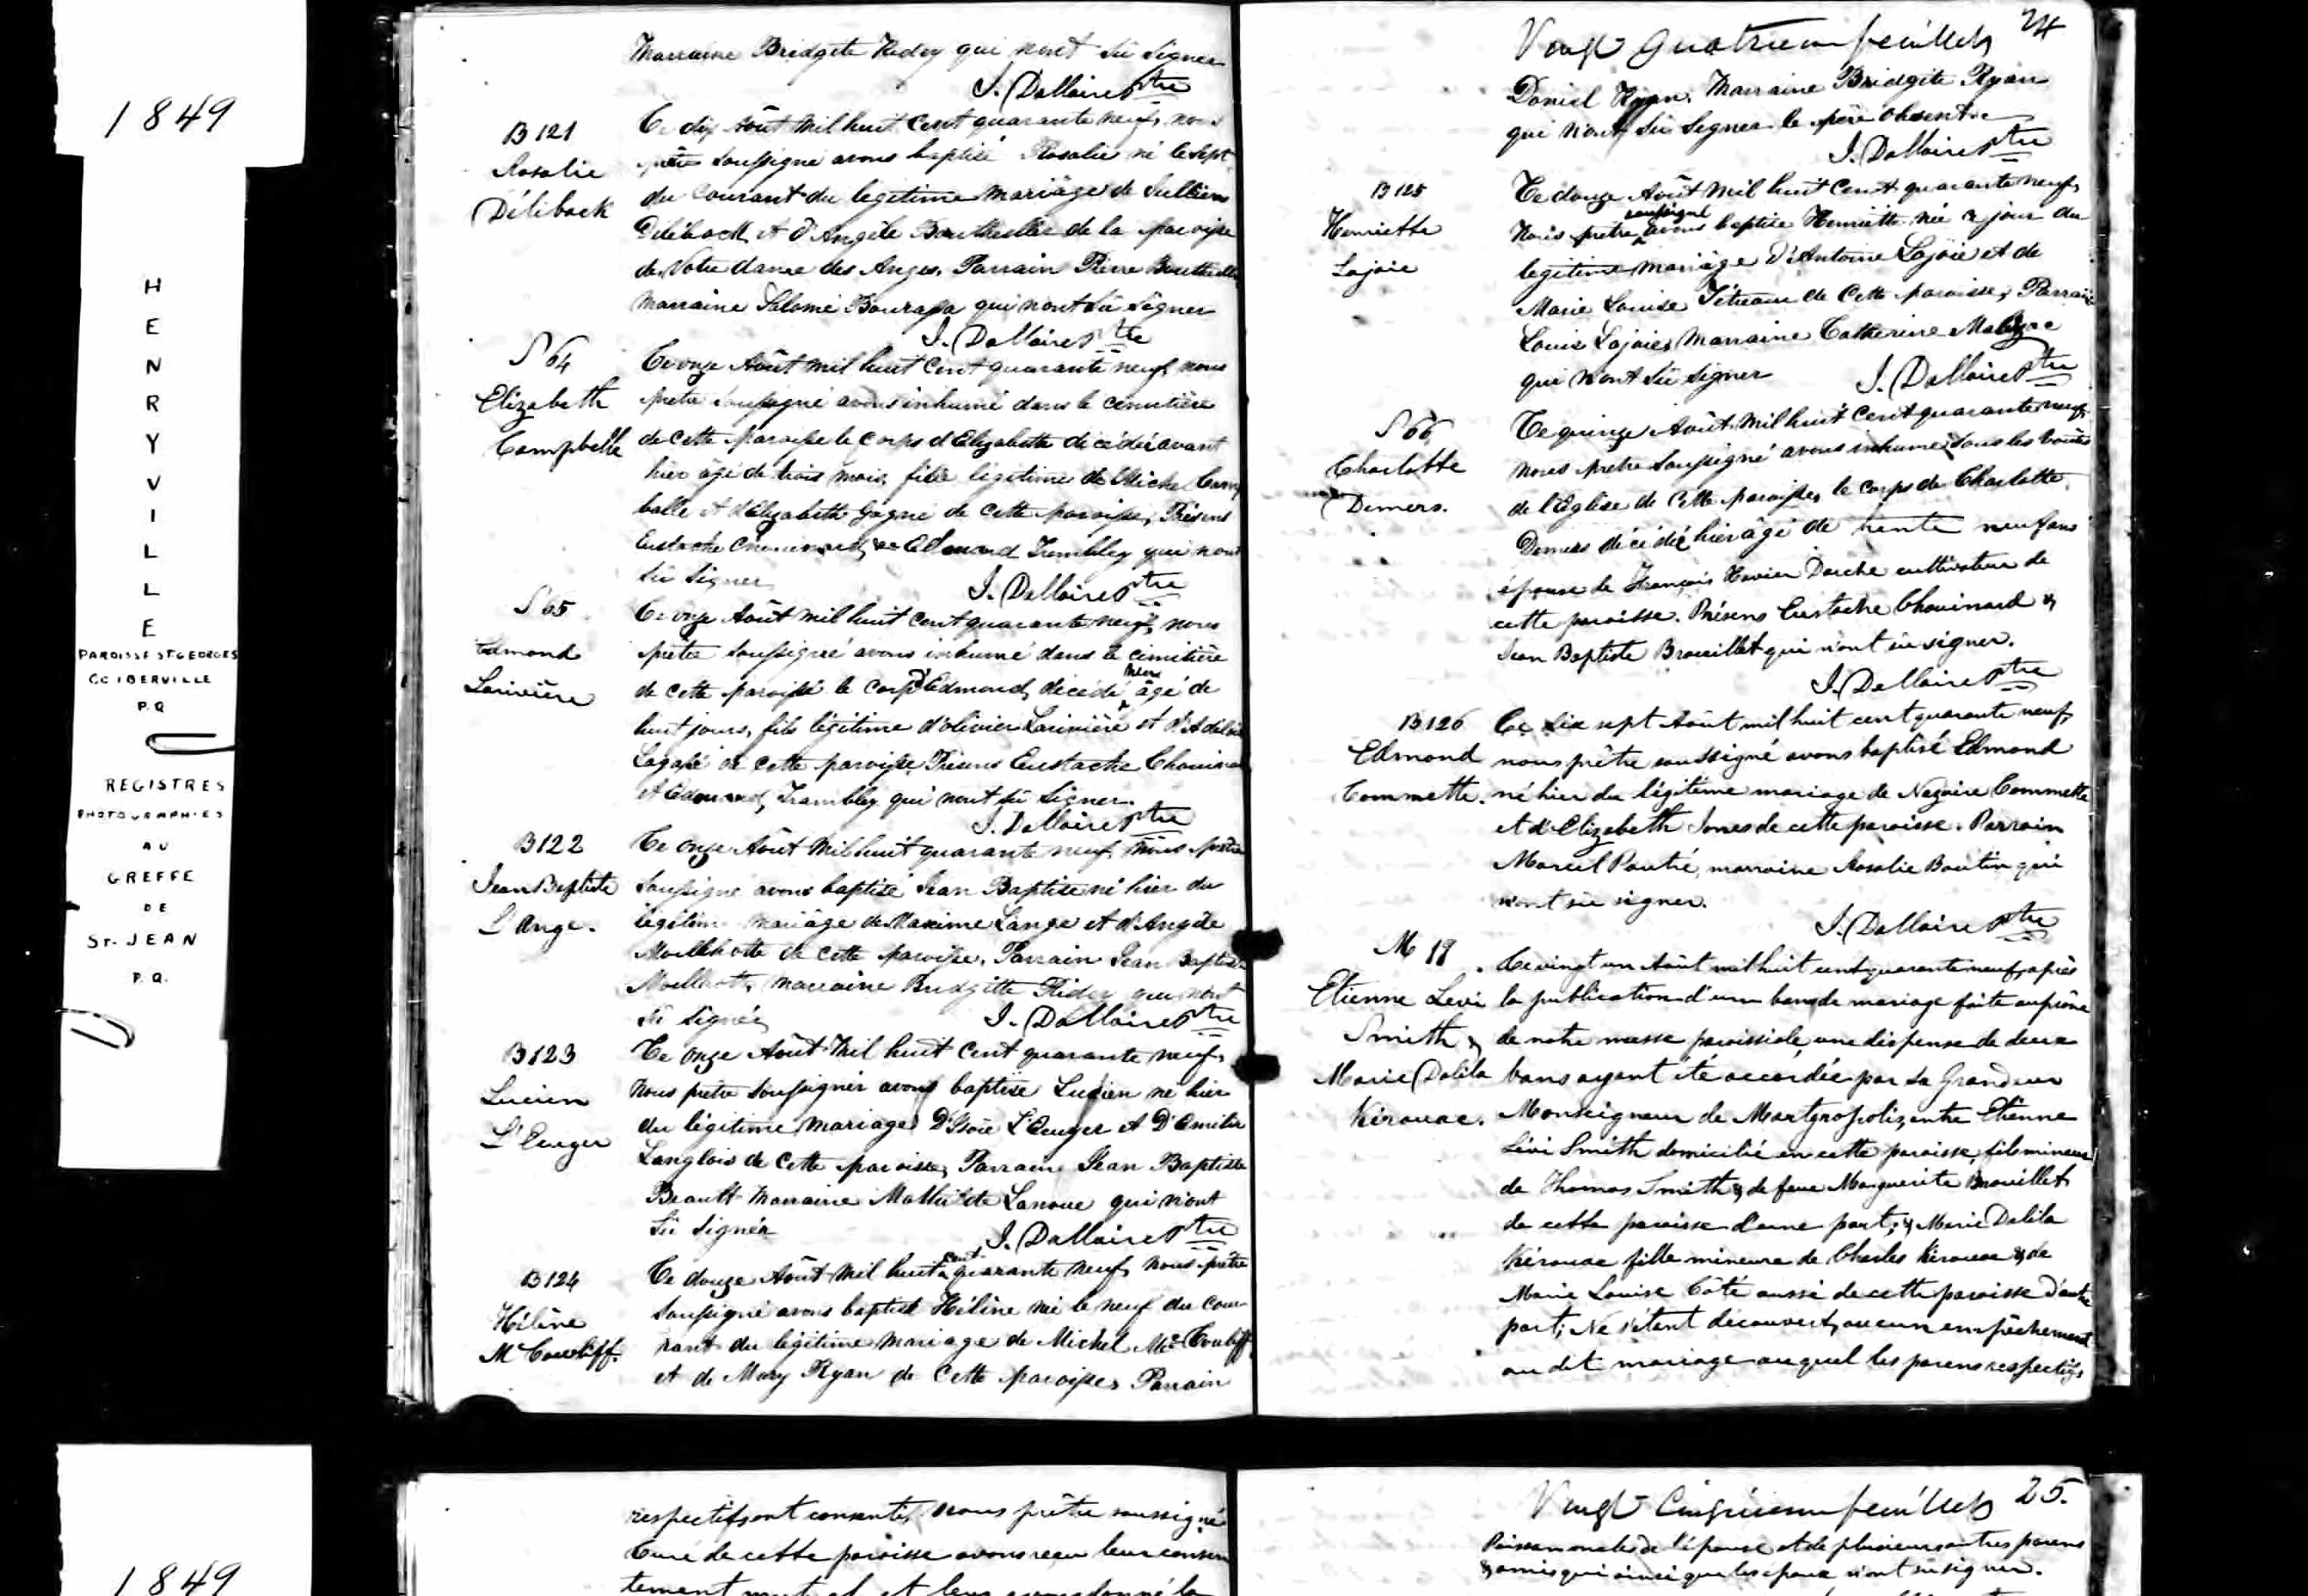 1849
HENRYVILLE
PAROISSE ST GEORGES
CO IBERVILLE
P.Q
REGISTRES
PHOTOGRAPHIES
AU
GREFFE
DE
ST. JEAN
P.Q.
Marraine Bridgite qui n'ont sû signer
J. Dallaire Ptre
B 121
Rosalie
Déliback
Ce dix Août mil huit cent quarante neuf, nous
prêtre soussigné avons baptisé Rosalie né le sept
du courant du legitime mariàge de Jullien
Déliback et d'Angèle de la paroisse
de Notre dame des Anges. Parrain Pierre
Marraine Salomé Bourassa qui n'ont sû signer
J. Dallaire Ptre
S 64
Elizabeth
Campbelle
Ce onze Août mil huit cent quarante neuf, nous
pretre soussigné avons inhumé dans le cimetière
de cette paroisse le corps d'Elizabeth décédée avant
hier âgé de trois mois, fille légitime de Michel Camp
balle et d'Elizabeth Gagné de cette paroisse, Présens
Eustache et Edmond Trembley qui n'ont
sû signer
J. Dallaire Ptre
S 65
Edmond
Larivière
Ce onze Août mil huit cent quarante neuf, nous
prêtre soussigné avons inhumé dans le cimitière
de cette paroisse le corps d'Edmond, décédé hier âgé de
huit jours, fils légitime d'olivier Larivière et d'
de cette paroisse. Présens Eustache
et Edouard Trambley qui n'ont sû signer.
J. Dallaire Ptre
B122
Jean Baptiste
L'Ange.
Ce onze Août mil huit quarante neuf, nous prêtre
soussigné avons baptisé Jean Baptise né hier du
légitime mariâge de Maxime Lange et d'Angèle
de cette paroisse, Parrain Jean Baptiste
Marraine Bridgitte qui n'ont
sû signée
J. Dallaire Ptre
B123
Lucien
L'Ecuyer
Ce onze Août mil huit cent quarante neuf,
nous pretre soussigner avons baptise Lucien né hier
du légitime mariage D' L'Ecuyer et D'Emilie
Langlois de cette paroisse, Parrain Jean Baptiste
Brault Marraine Mathilde Lanoue qui n'ont
sû signer
J. Dallaire Ptre
B124
Hélène
Mc
Ce douze Août mil huit cent quarante neuf, nous prêtre
soussigné avons baptisé Hélène né le neuf du cou-
rant du légitime mariage de Michel
et de Mary Ryan de cette paroisse, Parrain
Vingt Quatrieme feuillets 24
Daniel Ryan. Marraine Bridgite Ryan
qui n'ont sû signer le père absent.
J. Dallaire Ptre
B 125
Henriette
Lajoie
Ce douze Août mil huit cent quarante neuf,
Nous pretre soussigné avons baptise Henriette née ce jour du
legitime mariage d'Antoine Lajoie et de
Marie Louise Tétreau de cette paroisse, Parrain
Louis Lajoie, Marraine Catherine
qui n'ont sû signer
J. Dallaire Ptre
S 66
Charlotte
Demers.
Ce quinze Août mil huit cent quarante neuf,
nous pretre soussigné avons inhumé sous les voûtes
de l'Eglise de cette paroisse, le corps de Charlotte
Demers décédé hier âgé de trente neuf ans
épouse de François Xavier Daiche cultivateur de
cette paroisse. Présens Eustache Chouinard &
Jean Baptiste Brouillet qui n'ont sû signer.
J. Dallaire Ptre
B 126
Edmond
Commette.
Ce dix sept Août mil huit cent quarante neuf,
nous prêtre soussigné avons baptisé Edmond
né hier du légitime mariage de Nazaire Commette
et d'Elizabeth Jones de cette paroisse. Parrain
Marcel Pautié, marraine Rosalie Boutin qui
n'ont sû signer.
J. Dallaire Ptre
M 18
Etienne Levi
Smith &
Marie Dalila
Kérouac.
Ce vingt un Août mil huit cent quarante neuf, après
la publication d'un ban de mariage faite au prône
de notre messe paroissiale, une dispense de deux
bans ayant été accordée par Sa Grandeur
Monseigneur de Martyropolis, entre Etienne
Lévi Smith domicilié en cette paroisse, fils mineur
de Thomas Smith & de feue Marguerite Brouillet
de cette paroisse d'une part; & Marie Dalila
Kérouac fille mineure de Charles Kérouac & de
Marie Louise Côté aussi de cette paroisse d'autre
part; Ne s'étant découvert, aucun empêchement
au dit mariage auquel les parens respectifs
1849
respectifs ont consenti, nous prêtre soussigné
Curé de cette paroisse avons reçu leur consen
tement mutuel et leur avons donné la
Vingt Cinquieme feuillets 25.
de l'épouse et de plusieurs autres parens
& amis qui ainsi que les époux n'ont sû signer.